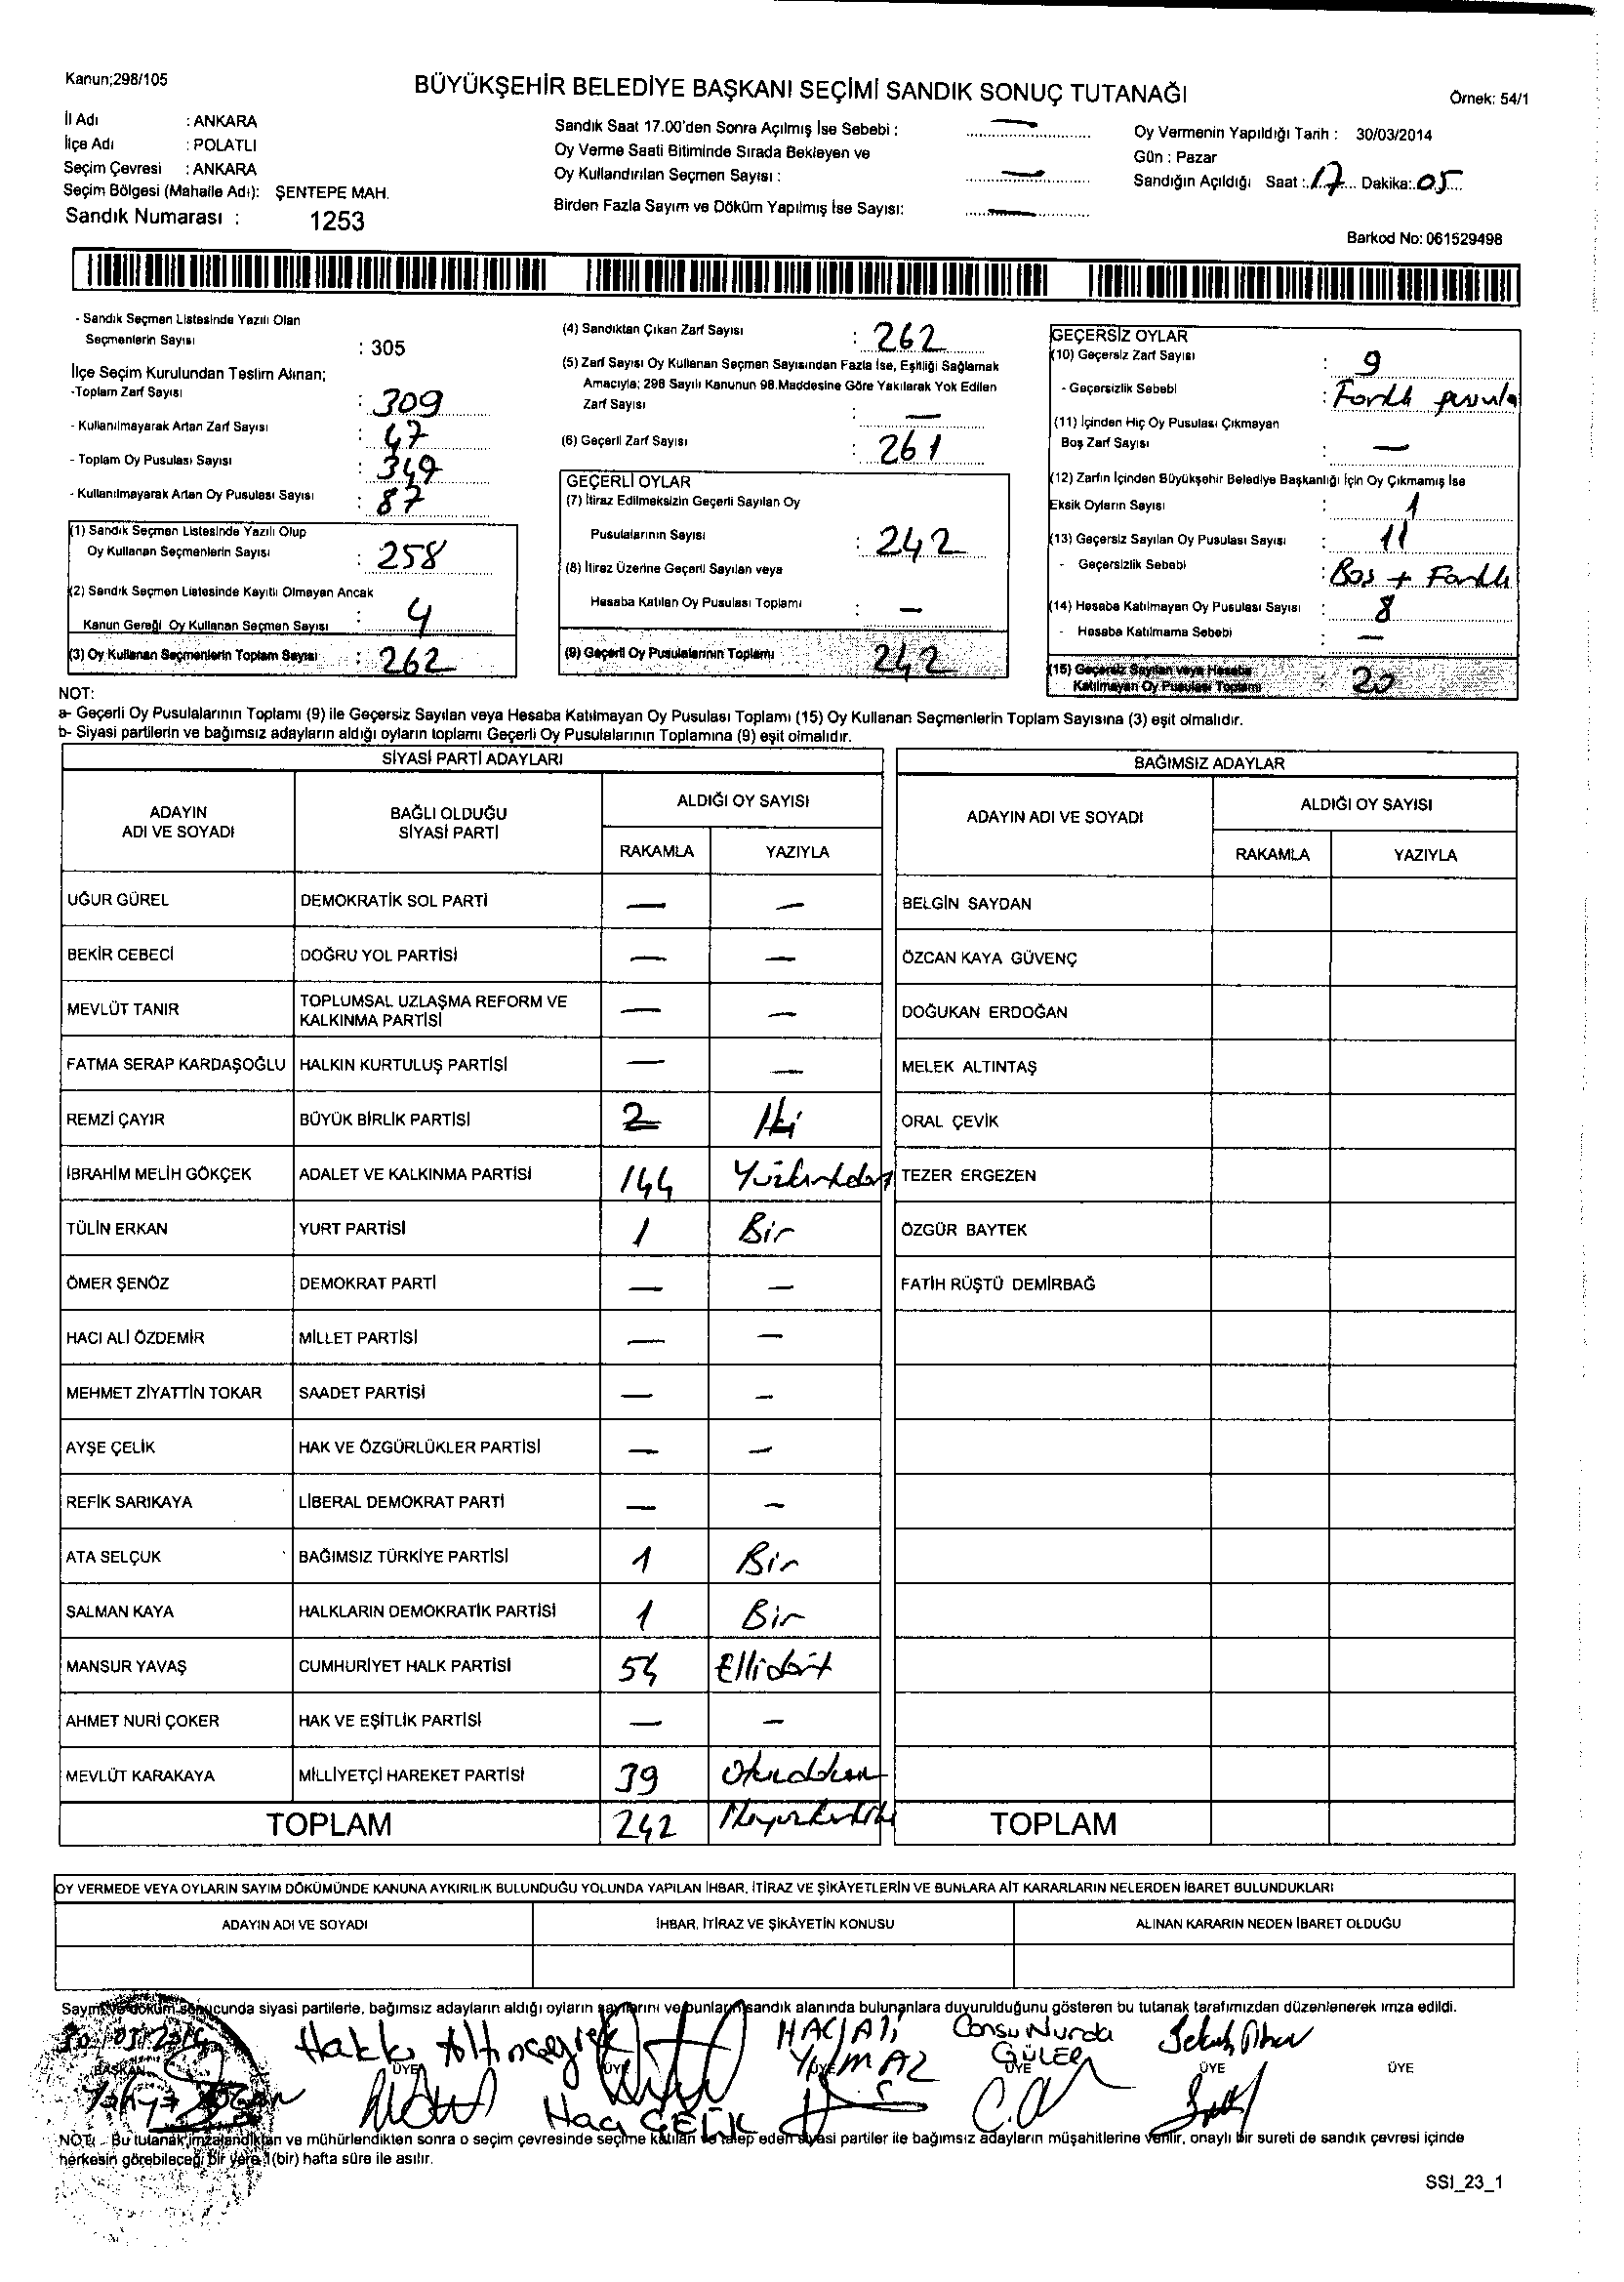 Kanun;298/105
BÜYÜKŞEHİR BELEDİYE BAŞKANI SEÇİMİ SANDIK SONUÇ TUTANAĞI
Örnek: 54/1
İl Adı : ANKARA
İlçe Adı : POLATLI
Seçim Çevresi : ANKARA
Seçim Bölgesi (Mahalle Adı): ŞENTEPE MAH.
Sandık Numarası : 1253
Sandık Saat 17.00'den Sonra Açılmış İse Sebebi : —
Oy Verme Saati Bitiminde Sırada Bekleyen ve
Oy Kullandırılan Seçmen Sayısı : —
Birden Fazla Sayım ve Döküm Yapılmış İse Sayısı: —
Oy Vermenin Yapıldığı Tarih : 30/03/2014
Gün : Pazar
Sandığın Açıldığı Saat : 17 Dakika: 05
Barkod No: 061529498
- Sandık Seçmen Listesinde Yazılı Olan
Seçmenlerin Sayısı : 305
İlçe Seçim Kurulundan Teslim Alınan;
-Toplam Zarf Sayısı : 309
- Kullanılmayarak Artan Zarf Sayısı : 47
- Toplam Oy Pusulası Sayısı : 349
- Kullanılmayarak Artan Oy Pusulası Sayısı : 87
(1) Sandık Seçmen Listesinde Yazılı Olup
Oy Kullanan Seçmenlerin Sayısı : 258
(2) Sandık Seçmen Listesinde Kayıtlı Olmayan Ancak
Kanun Gereği Oy Kullanan Seçmen Sayısı : 4
(3) Oy Kullanan Seçmenlerin Toplam Sayısı : 262
(4) Sandıktan Çıkan Zarf Sayısı : 262
(5) Zarf Sayısı Oy Kullanan Seçmen Sayısından Fazla İse, Eşitliği Sağlamak
Amacıyla; 298 Sayılı Kanunun 98.Maddesine Göre Yakılarak Yok Edilen
Zarf Sayısı : —
(6) Geçerli Zarf Sayısı : 261
GEÇERLİ OYLAR
(7) İtiraz Edilmeksizin Geçerli Sayılan Oy
Pusulalarının Sayısı : 242
(8) İtiraz Üzerine Geçerli Sayılan veya
Hesaba Katılan Oy Pusulası Toplamı : —
(9) Geçerli Oy Pusulalarının Toplamı 242
GEÇERSİZ OYLAR
(10) Geçersiz Zarf Sayısı : 9
- Geçersizlik Sebebi : Farklı pusula
(11) İçinden Hiç Oy Pusulası Çıkmayan
Boş Zarf Sayısı : —
(12) Zarfın İçinden Büyükşehir Belediye Başkanlığı İçin Oy Çıkmamış İse
Eksik Oyların Sayısı : 1
(13) Geçersiz Sayılan Oy Pusulası Sayısı : 11
- Geçersizlik Sebebi : Boş + Farklı
(14) Hesaba Katılmayan Oy Pusulası Sayısı : 8
- Hesaba Katılmama Sebebi : —
(15) Geçersiz Sayılan veya Hesaba
Katılmayan Oy Pusulası Toplamı : 20
NOT:
a- Geçerli Oy Pusulalarının Toplamı (9) ile Geçersiz Sayılan veya Hesaba Katılmayan Oy Pusulası Toplamı (15) Oy Kullanan Seçmenlerin Toplam Sayısına (3) eşit olmalıdır.
b- Siyasi partilerin ve bağımsız adayların aldığı oyların toplamı Geçerli Oy Pusulalarının Toplamına (9) eşit olmalıdır.
SİYASİ PARTİ ADAYLARI
ADAYIN ADI VE SOYADI
BAĞLI OLDUĞU SİYASİ PARTİ
ALDIĞI OY SAYISI
RAKAMLA YAZIYLA
UĞUR GÜREL DEMOKRATİK SOL PARTİ — —
BEKİR CEBECİ DOĞRU YOL PARTİSİ — —
MEVLÜT TANIR TOPLUMSAL UZLAŞMA REFORM VE KALKINMA PARTİSİ — —
FATMA SERAP KARDAŞOĞLU HALKIN KURTULUŞ PARTİSİ — —
REMZİ ÇAYIR BÜYÜK BİRLİK PARTİSİ 2 İki
İBRAHİM MELİH GÖKÇEK ADALET VE KALKINMA PARTİSİ 144
TÜLİN ERKAN YURT PARTİSİ 1 Bir
ÖMER ŞENÖZ DEMOKRAT PARTİ — —
HACI ALİ ÖZDEMİR MİLLET PARTİSİ — —
MEHMET ZİYATTİN TOKAR SAADET PARTİSİ — —
AYŞE ÇELİK HAK VE ÖZGÜRLÜKLER PARTİSİ — —
REFİK SARIKAYA LİBERAL DEMOKRAT PARTİ — —
ATA SELÇUK BAĞIMSIZ TÜRKİYE PARTİSİ 1 Bir
SALMAN KAYA HALKLARIN DEMOKRATİK PARTİSİ 1 Bir
MANSUR YAVAŞ CUMHURİYET HALK PARTİSİ 54 Ellidört
AHMET NURİ ÇOKER HAK VE EŞİTLİK PARTİSİ — —
MEVLÜT KARAKAYA MİLLİYETÇİ HAREKET PARTİSİ 39
TOPLAM 242
BAĞIMSIZ ADAYLAR
ADAYIN ADI VE SOYADI
ALDIĞI OY SAYISI
RAKAMLA YAZIYLA
BELGİN SAYDAN
ÖZCAN KAYA GÜVENÇ
DOĞUKAN ERDOĞAN
MELEK ALTINTAŞ
ORAL ÇEVİK
TEZER ERGEZEN
ÖZGÜR BAYTEK
FATİH RÜŞTÜ DEMİRBAĞ
TOPLAM
OY VERMEDE VEYA OYLARIN SAYIM DÖKÜMÜNDE KANUNA AYKIRILIK BULUNDUĞU YOLUNDA YAPILAN İHBAR, İTİRAZ VE ŞİKÂYETLERİN VE BUNLARA AİT KARARLARIN NELERDEN İBARET BULUNDUKLARI
ADAYIN ADI VE SOYADI İHBAR, İTİRAZ VE ŞİKÂYETİN KONUSU ALINAN KARARIN NEDEN İBARET OLDUĞU
Sayım ve döküm sonucunda siyasi partilerle, bağımsız adayların aldığı oyların sayılarını ve bunların sandık alanında bulunanlara duyurulduğunu gösteren bu tutanak tarafımızdan düzenlenerek imza edildi.
30/03/2014
HACI ALİ YILMAZ
Cansu Nurda GÜLER
BAŞKAN ÜYE ÜYE ÜYE ÜYE ÜYE ÜYE
Hacı ÇELİK
NOT: - Bu tutanak imzalandıktan ve mühürlendikten sonra o seçim çevresinde seçime katılan ve talep eden siyasi partiler ile bağımsız adayların müşahitlerine verilir, onaylı bir sureti de sandık çevresi içinde
herkesin görebileceği bir yere 1(bir) hafta süre ile asılır.
SSI_23_1